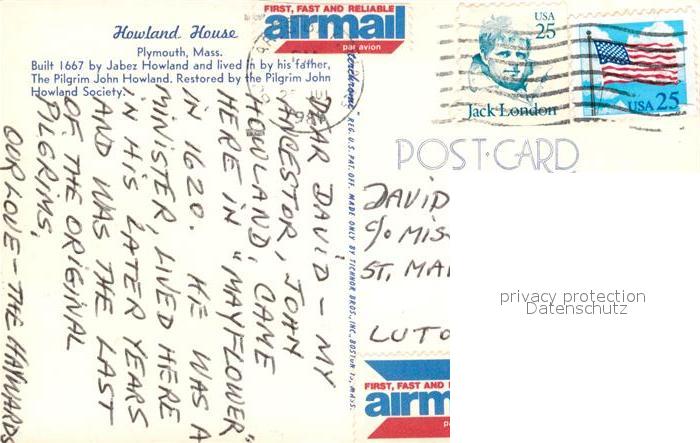 Howland House
Plymouth, Mass.
Built 1667 by Jabez Howland and lived in by his father,
The Pilgrim John Howland. Restored by the Pilgrim John
Howland Society.
DEAR DAVID — MY
ANCESTOR, JOHN
HOWLAND, CAME
HERE IN "MAYFLOWER"
IN 1620. HE WAS A
MINISTER, LIVED HERE
IN HIS LATER YEARS
AND WAS THE LAST
OF THE ORIGINAL
PILGRIMS,
OUR LOVE — THE
FIRST, FAST AND RELIABLE
airmail
par avion
REG. U.S. PAT. OFF. MADE ONLY BY TICHNOR BROS., INC., BOSTON 15, MASS.
USA
25
Jack London
USA 25
POST-CARD
DAVID
c/o MIS
ST. MA
LUTO
privacy protection
Datenschutz
FIRST, FAST AND
airm
pa